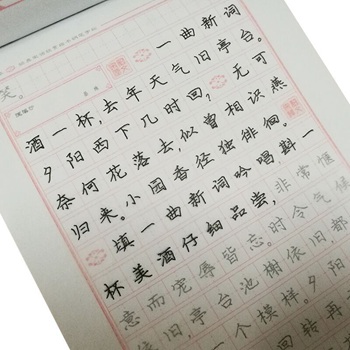 一曲新词
酒一杯,去年天气旧亭台。
夕阳西下几时回,无可
奈何花落去,似曾相识燕
归来。小园香径独徘徊。
填一曲新词吟唱,斟一
杯美酒仔细品尝,非常惬
意而宠辱皆忘。时令气候
依旧,亭台池榭依旧,都
一个模样。夕阳
回转再